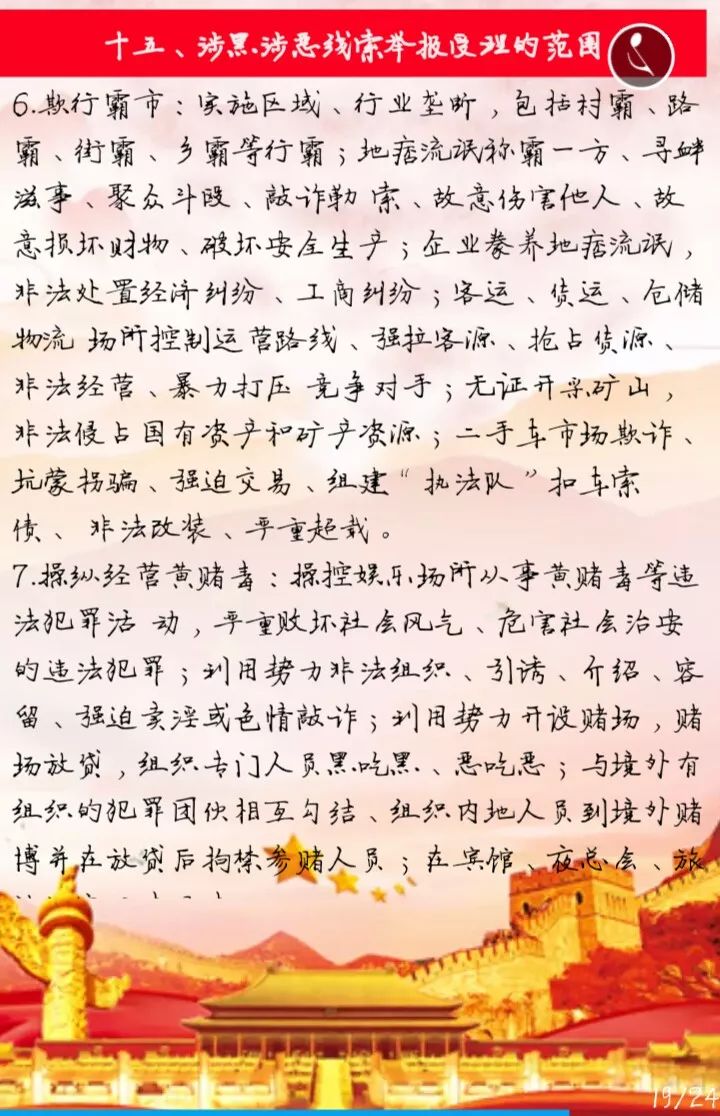 十五、涉黑涉恶线索举报受理的范围
6.欺行霸市：实施区域、行业垄断，包括村霸、路
霸、街霸、乡霸等行霸；地痞流氓称霸一方、寻衅
滋事、聚众斗殴、敲诈勒 索、故意伤害他人、故
意损坏财物、破坏安全生产；企业豢养地痞流氓，
非法处置经济纠纷、工商纠纷；客运、货运、仓储
物流 场所控制运营路线、强拉客源、抢占货源、
非法经营、暴力打压 竞争对手；无证开采矿山，
非法侵占国有资产和矿产资源；二手车市场欺诈、
坑蒙拐骗、强迫交易、组建“执法队”扣车索
债、 非法改装、严重超载。
7.操纵经营黄赌毒：操控娱乐场所从事黄赌毒等违
法犯罪活 动，严重败坏社会风气、危害社会治安
的违法犯罪；利用势力非法组织、引诱、介绍、容
留、强迫卖淫或色情敲诈；利用势力开设赌场，赌
场放贷，组织专门人员黑吃黑、恶吃恶；与境外有
组织的犯罪团伙相互勾结、组织内地人员到境外赌
博并在放贷后拘禁参赌人员；在宾馆、夜总会、旅
19/24